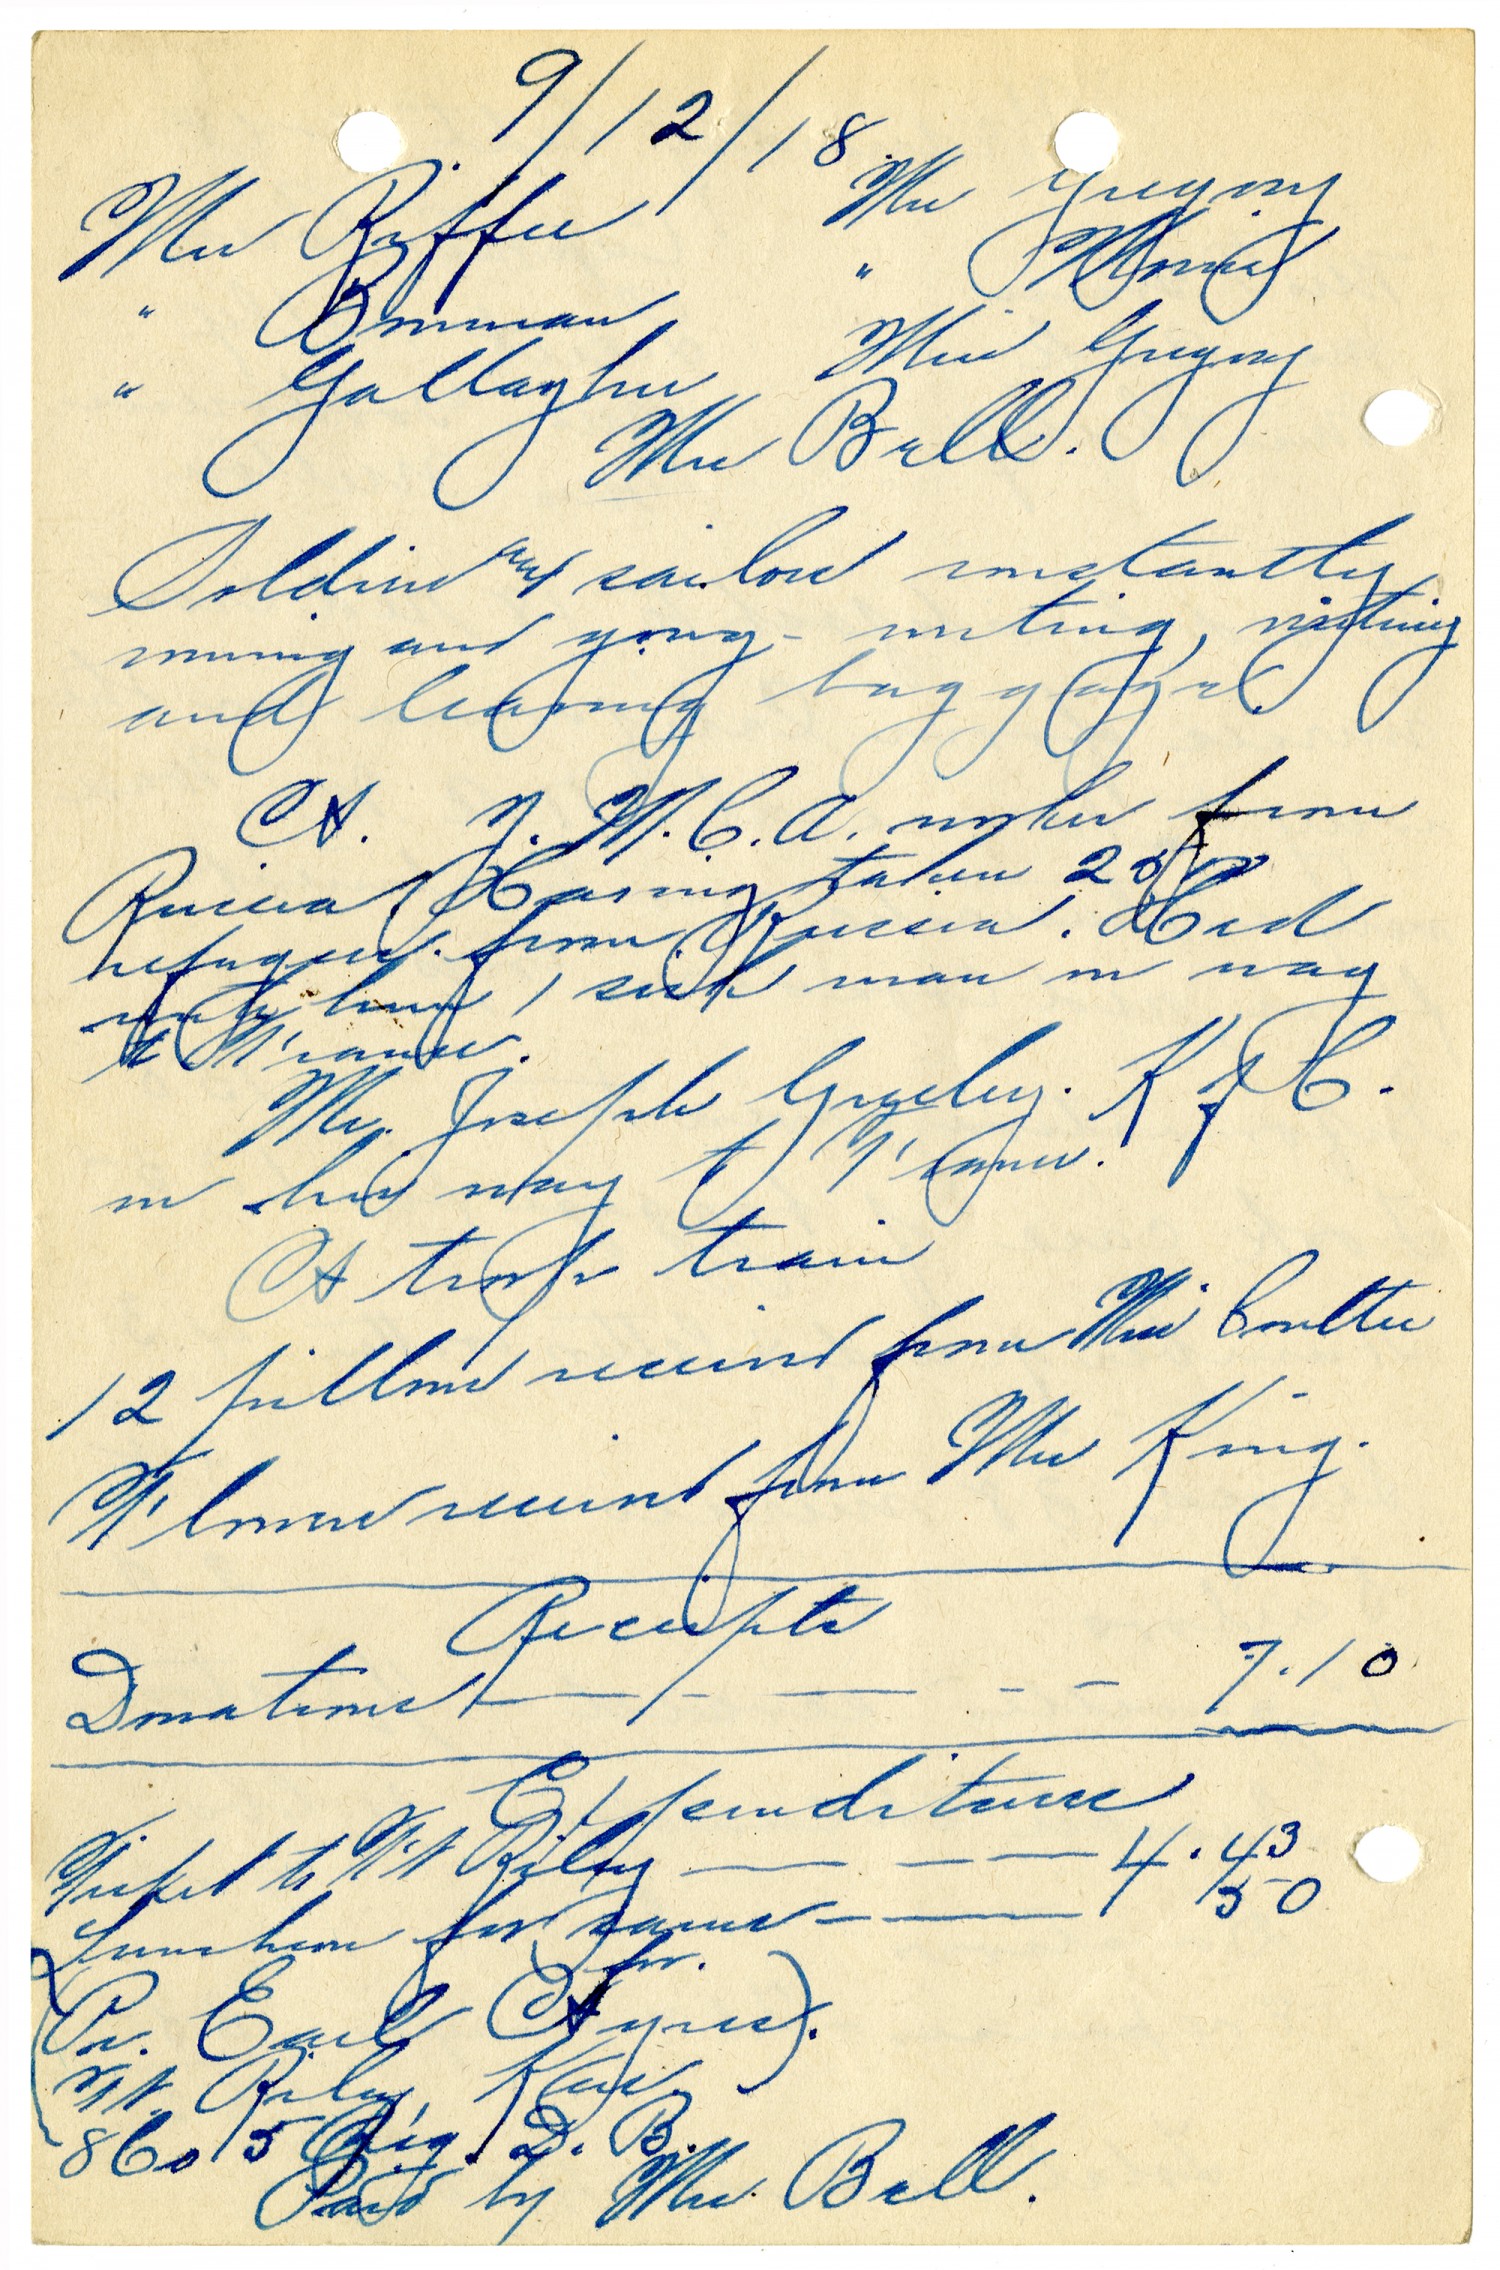 9/12/18.
Mrs Riffee
Mrs Gregory
" Bowman
" Morris
" Gallagher
Miss Gregory
Mrs Bell.
Soldiers and sailors constantly
coming and going - writing, visiting
and leaving baggage.
A. Y.M.C.A. worker from
Russia. Having taken 25
refugees from Russia. Had
only lost 1 sick man on way
to France.
Mr. Joseph Greeley. K of C.
on his way to France.
A troop train
12 pillows received from Miss Coulter
Flowers received from Mrs King.
Receipts
Donations — - — - - 7.10
Expenditures
Ticket to Ft Riley — — — 4.43
Luncheon for same — — 50
for.
(Pv. Earl Ayres).
Ft. Riley, Kans.
8 Co 5 Brig. D. B.
Paid by Mrs. Bell.